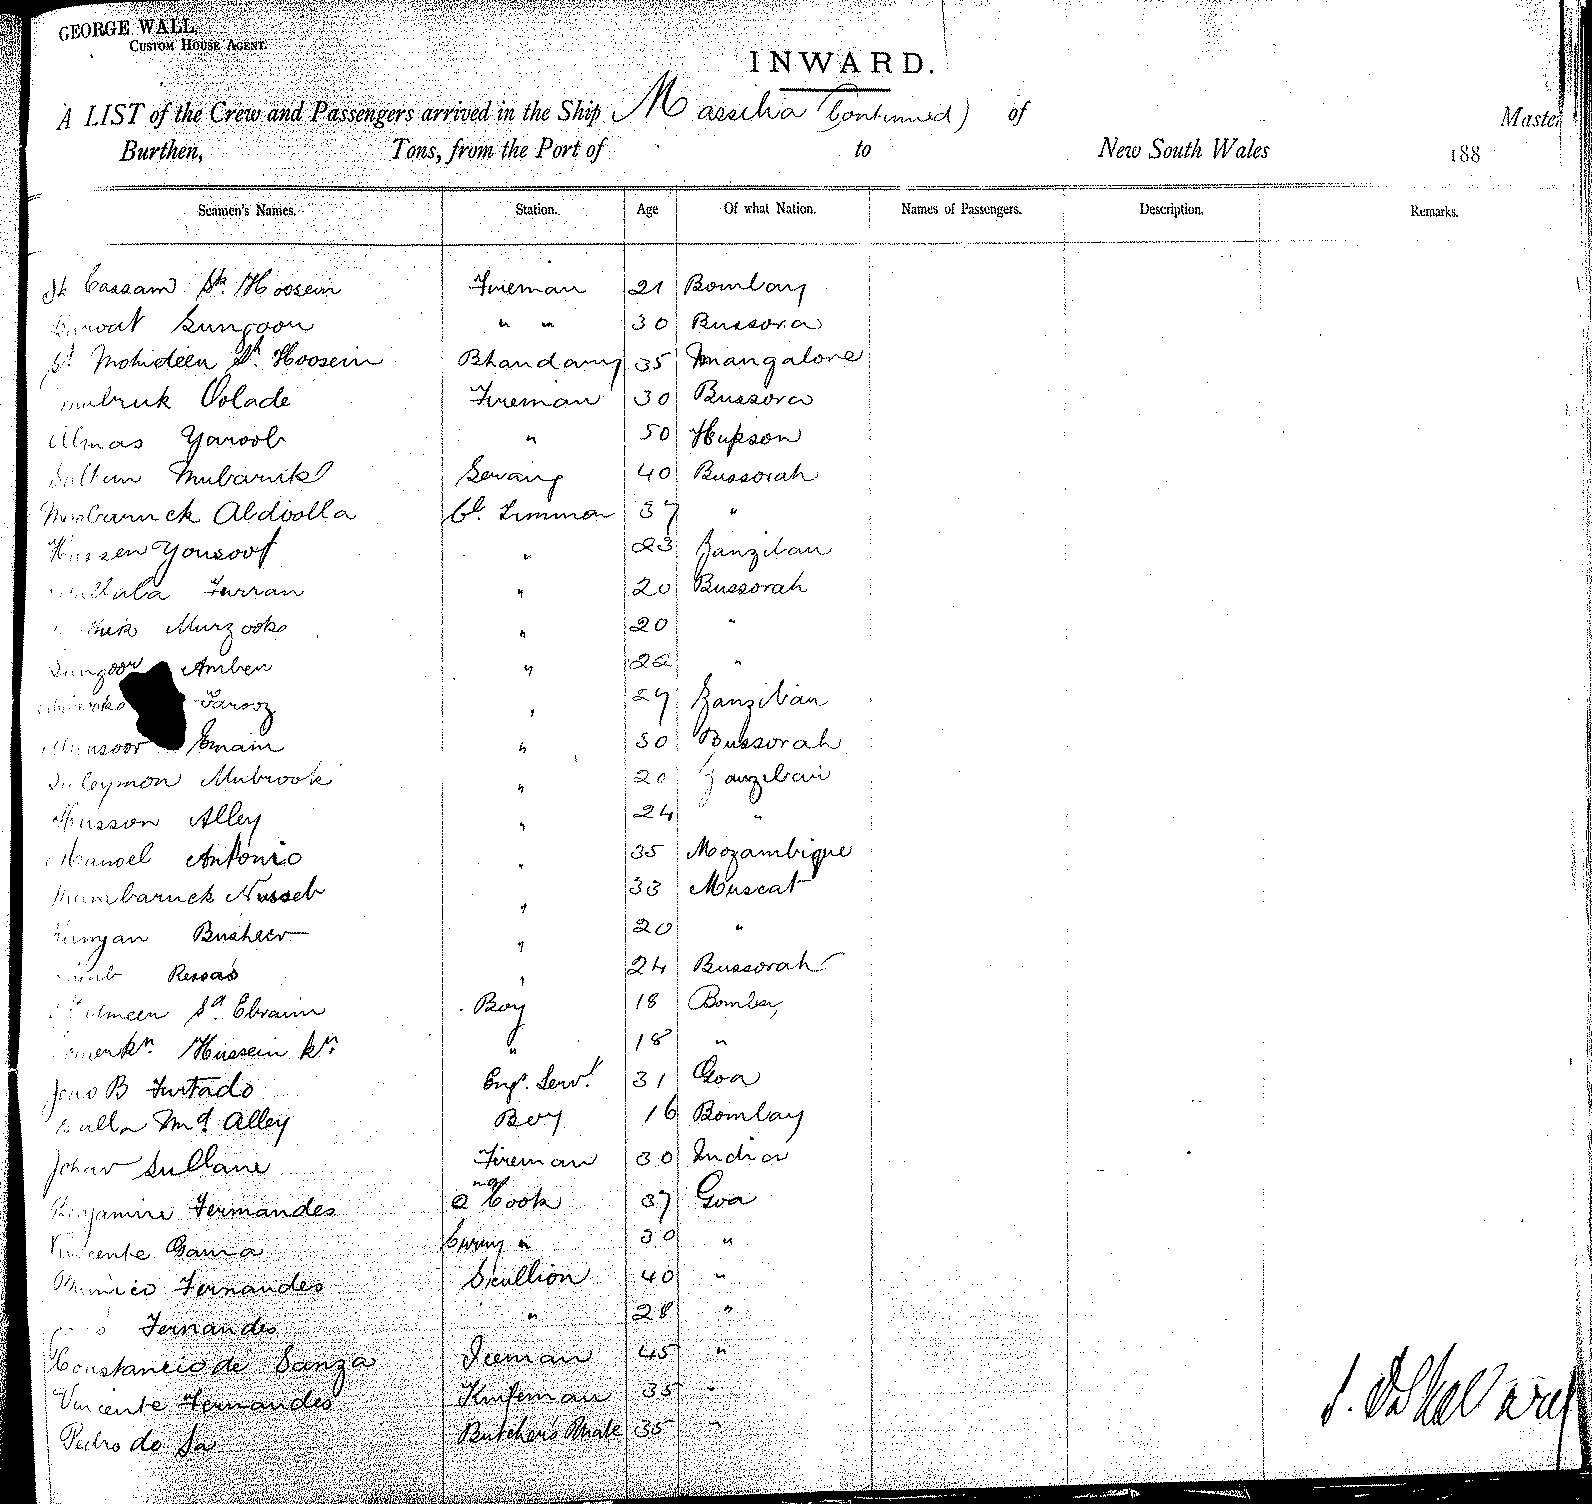 GEORGE WALL,
CUSTOM HOUSE AGENT.
INWARD.
A LIST of the Crew and Passengers arrived in the Ship Massilia (Continued) of Master
Burthen, Tons, from the Port of to New South Wales 188
Seamen's Names. Station. Age Of what Nation. Names of Passengers. Description. Remarks.
Sk Cassam Sk. Hoosein Fireman 21 Bombay
" " 30 Bussora
Sk Mohideen Sk. Hoosein Bhandary 35 Mangalore
mubruk Oolade Fireman 30 Bussora
Almas Yaroob " 50 Hupson
Sultan Mubarik Serang 40 Bussorah
Mubaruck Abdoolla Cl. Trimmer 37 "
Hassen Yousoof " 23 Zanzibar
Farran " 20 Bussorah
Murzook " 20 "
Sungoor Amber " 22 "
Farooz " 27 Zanzibar
Munsoor Emam " 30 Bussorah
Suleymon Mubrook " 20 Zanzibar
Husson Alley " 24 "
Manoel Antonio " 35 Mozambique
Mumbaruck Nusseb " 33 Muscat
Busheer " 20 "
Ressas " 24 Bussorah
Sd. Ebraim Boy 18 Bombay
Hussein kn. " 18 "
Joao B Furtado Eng. Servt. 31 Goa
Md Alley Boy 16 Bombay
Johar Sullane Fireman 30 India
Benjamine Fernandes 2nd Cook 37 Goa
Vincente Gama " 30 "
Fernandes Scullion 40 "
Fernandes " 28 "
Constancio de Sanza Iceman 45 "
Vincente Fernandes Knifeman 35 "
Pedro de Sa Butcher's Mate 35 "